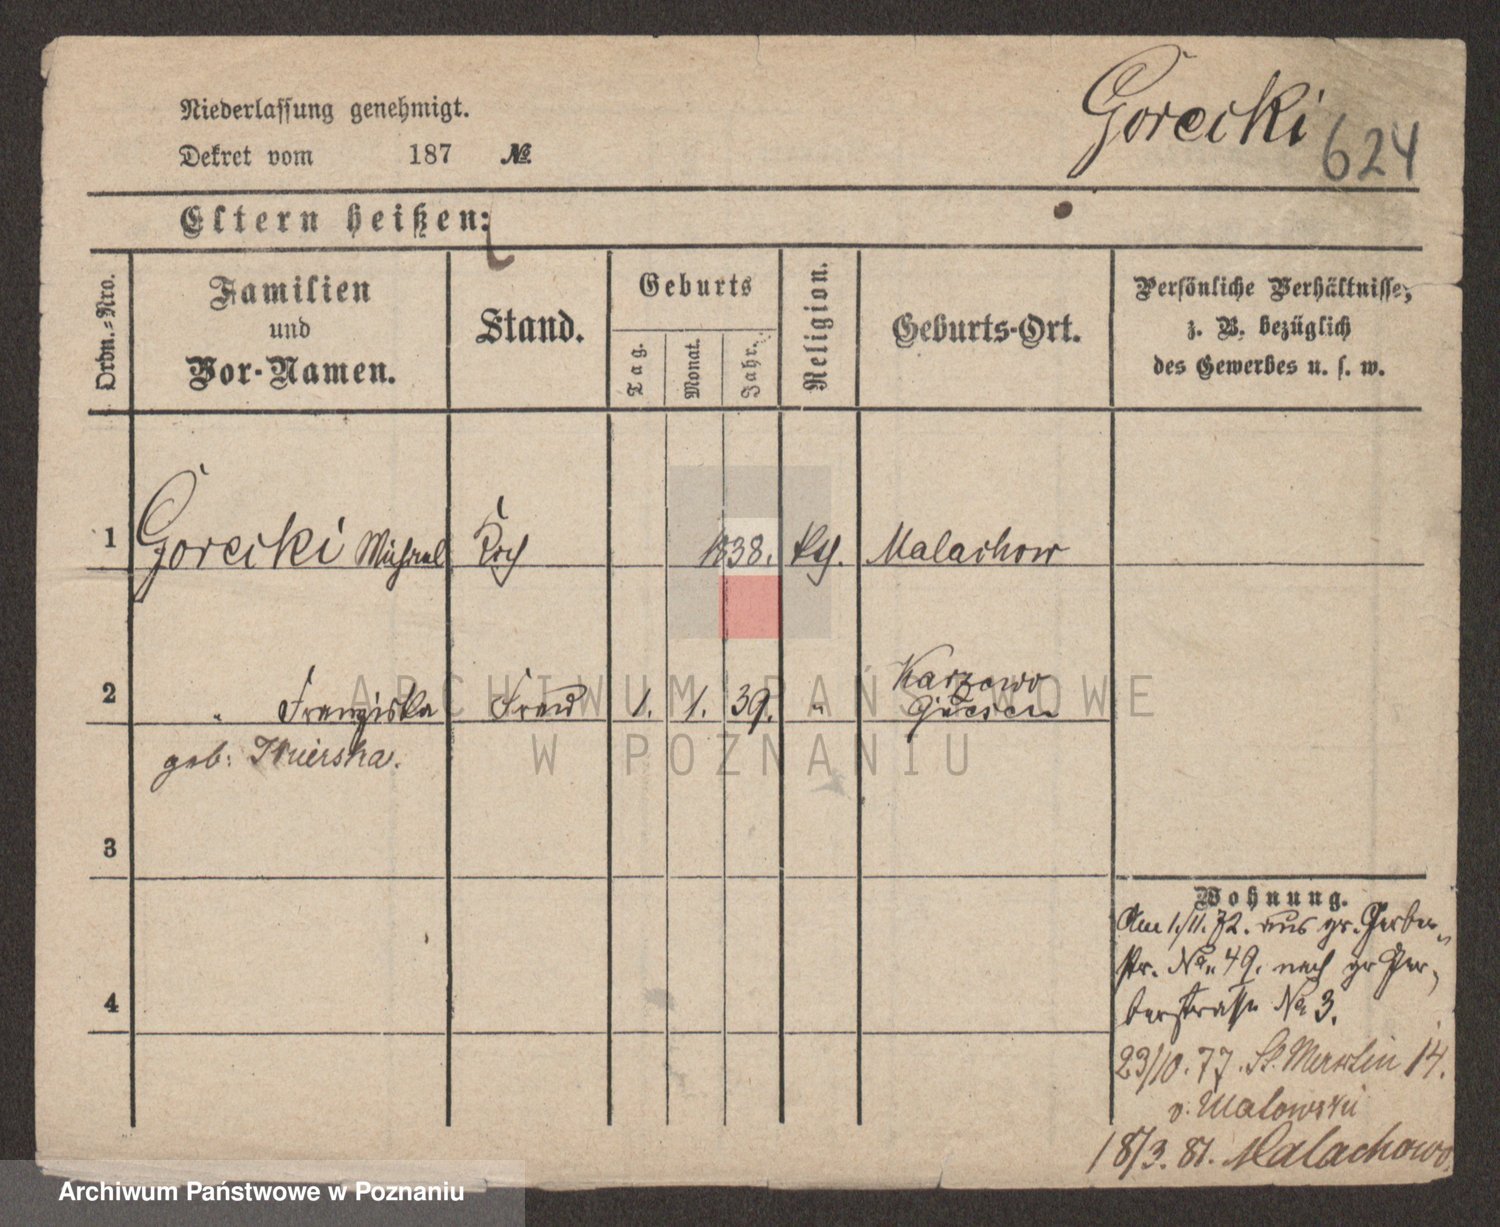 Niederlassung genehmigt.
Dekret vom 187 №
Gorecki 624
Eltern heißen:
Ordn.-Nro.
Familien
und
Vor-Namen.
Stand.
Geburts
Tag.
Monat.
Jahr.
Religion.
Geburts-Ort.
Persönliche Verhältnisse,
z. B. bezüglich
des Gewerbes u. s. w.
1 Gorecki Michael Koch 1838. kth. Malachow
2 " Franziska Frau 1. 1. 39. " Karzewo
Gnesen
geb:
3
4
Wohnung.
Am 1/11. 72. aus gr. Gerber-
str. No. 49. nach gr Ger-
berstrasse No 3.
23/10. 77. St. Martin 14.
v. Malowski
18/3. 81. Malachowo
ARCHIWUM PAŃSTWOWE
W POZNANIU
Archiwum Państwowe w Poznaniu